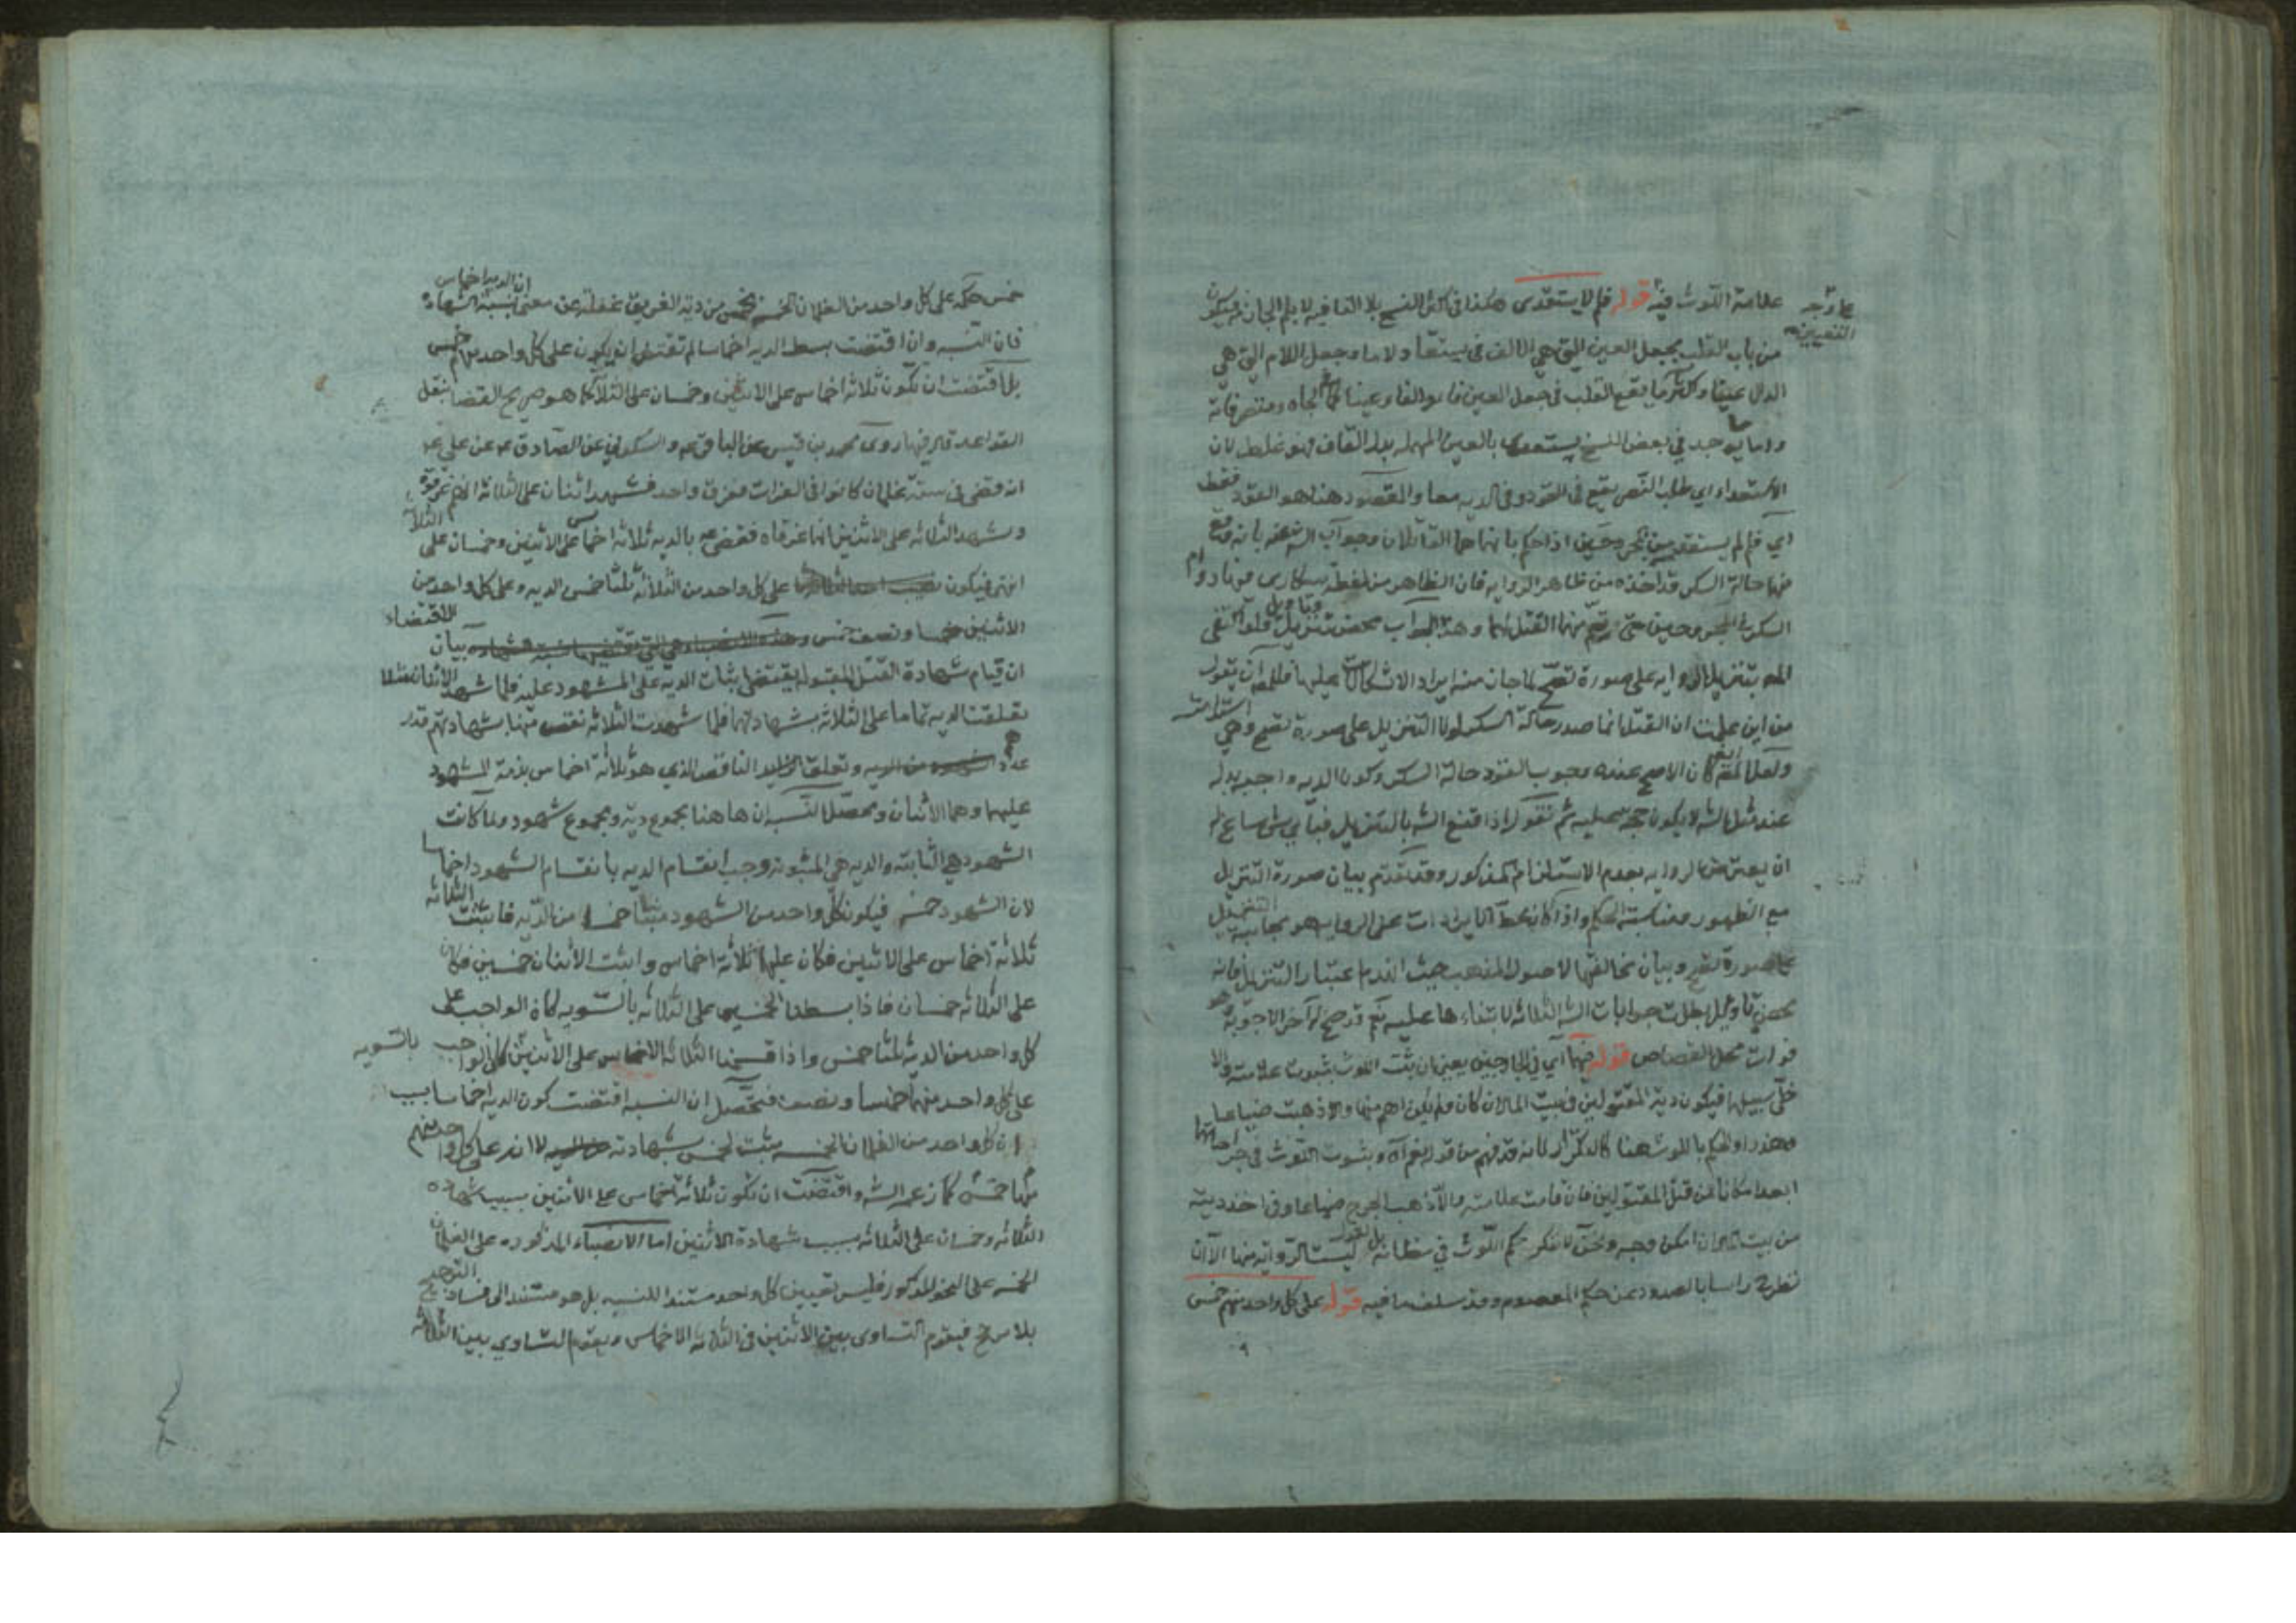 علامة اللوث فيه قوله فلم لا يستقدى هكذا في اكثر النسخ بلا القافيه لا يلم الجاز فيكون
على وجه التعيين
من باب القلب بجعل العين التي هي الالف في يستقا ولاما وجعل اللام التي هي
الدال عينا وكثر ما يقع القلب في جعل العين فا والفا عينا كما في الجاه ومتصرفاته
واما ما يوجد في بعض النسخ يستعدى بالعين المهمله بدل القاف فهو غلط لان
الاستعداء اي طلب النصر يقع في القود وفي الديه معا والمقصود هنا هو القود فقط
اي فلم لم يستقد من المجروحين اذا حكم بانهما هما القاتلان وجواب الشه عنه بانه وقع
منهما حالة السكر قد اخذه من ظاهر الروايه فان الظاهر من لفظة سكارى دوام
السكر في المجروحين حتى وقع منهما القتل لهما وهذا الجواب محض تنزيل وتاويل ولو اكتفى
المص بتنزيل الروايه على صورة تصح لما جاز منه ايراد الاشكالات عليها فللمص ان يقول
من اين علمت ان القتل انما صدر حالة السكر لولا التنزيل على صورة تصح وهي
ولعل المص كان الاصح عنده وجوب القود حالة السكر وكون الديه واجبه بدله
عند مثل الشه لا يكون حجة عليه ثم نقول اذا قنع الشه بالتنزيل فباي شي ساغ له
ان يعترض الروايه بعدم الاستلزام المذكور وقد تقدم بيان صورة التنزيل
مع الظهور مناسبته الحكم واذا كان محط الايرادات على الروايه هو مجانبة التنزيل
على صورة تصح وبيان مخالفتها لاصول المذهب حيث اعتبار التنزيل فانه
محض تاويل بطلت جوابات الشه الثلاثه لابتناءها عليه نعم قد صح له آخر الاجوبة هو
فوات محل القصاص قوله فيهما اي في المجروحين يعني ان ثبت اللوث بثبوت علامته والا
خلى سبيلهما فيكون دية المقتولين في بيت المال ان كان ولم يكن اهم منهما والا ذهبت ضياعا
وهدرا والحكم باللوث هنا كالتكرار لانه قد فهم من قوله وثبوت اللوث في
ابعد امكانا من قتل المقتولين فان قامت علامته والا ذهب الجرح ضياعا وفي اخذ ديته
من بيت المال ان امكن وجه ونحن لا ننكر حكم اللوث في مظانه بل نقول ليست الروايه منها الا ان
نطرح راسا بالصدود عن حكم المعصوم وقد سلف ما فيه قوله على كل واحد منهم خمس
خمس حكمه على كل واحد من الغلمان الخمسه بخمس من دية الغريق غفلة عن معنى نسبة الشهادة
ان الديه اخماس
فان النسبه وان اقتضت بسط الديه اخماسا لم تقتض ان يكون على كل واحد منهم خمس
بل اقتضت ان تكون ثلاثة اخماس على الاثنين وخمسان على الثلاثة كما هو صريح القضا بنقل
القواعد قال فيها روى محمد بن قيس عن الباقر ع والسكوني عن الصادق ع عن علي ع
انه قضى في ستة غلمان كانوا في الفرات فغرق واحد فشهد اثنان على الثلاثة انهم غرقوه
وشهد الثلاثه على الاثنين انهما غرقاه فقضى ع بالديه ثلاثة اخماس على الاثنين وخمسان على الثلاثه
انتهى فيكون على كل واحد من الثلاثه ثلثا خمس الديه وعلى كل واحد من
الاثنين خمسا ونصف خمس بيان الاقتضاء
ان قيام شهادة القتل المقبوله يقتضي ثبات الديه على المشهود عليه فلما شهد الاثنان مثلا
تعلقت الديه تماما على الثلاثه بشهادتهما فلما شهدت الثلاثه نقص منها بشهادتهم قدر
عددهم وتعلق الناقص الذي هو ثلاثة اخماس بذمة المشهود
عليهما وهما الاثنان ومحصل النسبه ان هاهنا مجموع ديه ومجموع شهود ولما كانت
الشهود هي الثابته والديه هي المثبوته وجب انقسام الديه بانقسام الشهود اخماسا
لان الشهود خمسه فيكون كل واحد من الشهود مثبتا خمسا من الديه فاثبت الثلاثه
ثلاثة اخماس على الاثنين فكان عليهما ثلاثة اخماس واثبت الاثنان خمسين فكان
على الثلاثه خمسان فاذا بسطنا الخمسين على الثلاثه بالتسويه كان الواجب على
كل واحد من الديه ثلثا خمس واذا قسمنا الثلاثه الاخماس على الاثنين كان الواجب بالتسويه
على كل واحد منهما خمسا ونصف فتحصل ان النسبه اقتضت كون الديه اخماسا بسبب
ان كل واحد من الغلمان الخمسه مثبت لخمس بشهادته لا انه على كل واحد منهم
منها خمسه كما زعم الشه واقتضت ان تكون ثلاثة اخماس على الاثنين بسبب شهادة
الثلاثه وخمسان على الثلاثه بسبب شهادة الاثنين اما الانصباء المذكوره على الغلمان
الخمسه على النحو المذكور فليس تعيين كل واحد مستندا للنسبه بل هو مستند الى فساد الترجيح
بلا مرجح فيقدم التساوي بين الاثنين في الثلاثه الاخماس ويقدم التساوي بين الثلاثه